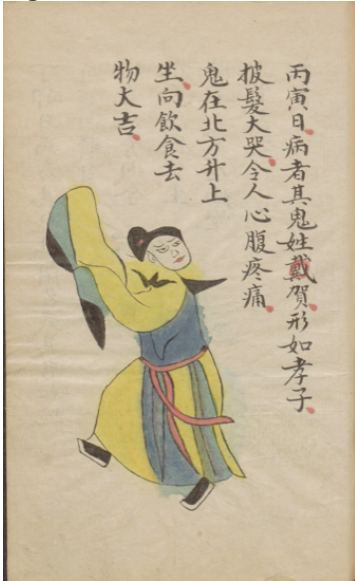 丙寅日病者其鬼姓戴賀形如孝子
披髮大哭令人心腹疼痛
鬼在北方井上
坐向飲食去
物大吉